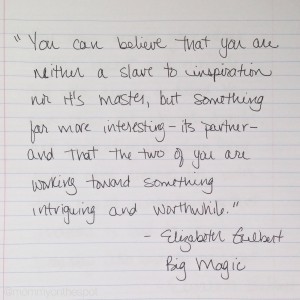 "You can believe that you are
neither a slave to inspiration
nor it's master, but something
far more interesting - its partner -
and that the two of you are
working toward something
intriguing and worthwhile."
- Elizabeth Gilbert
Big Magic